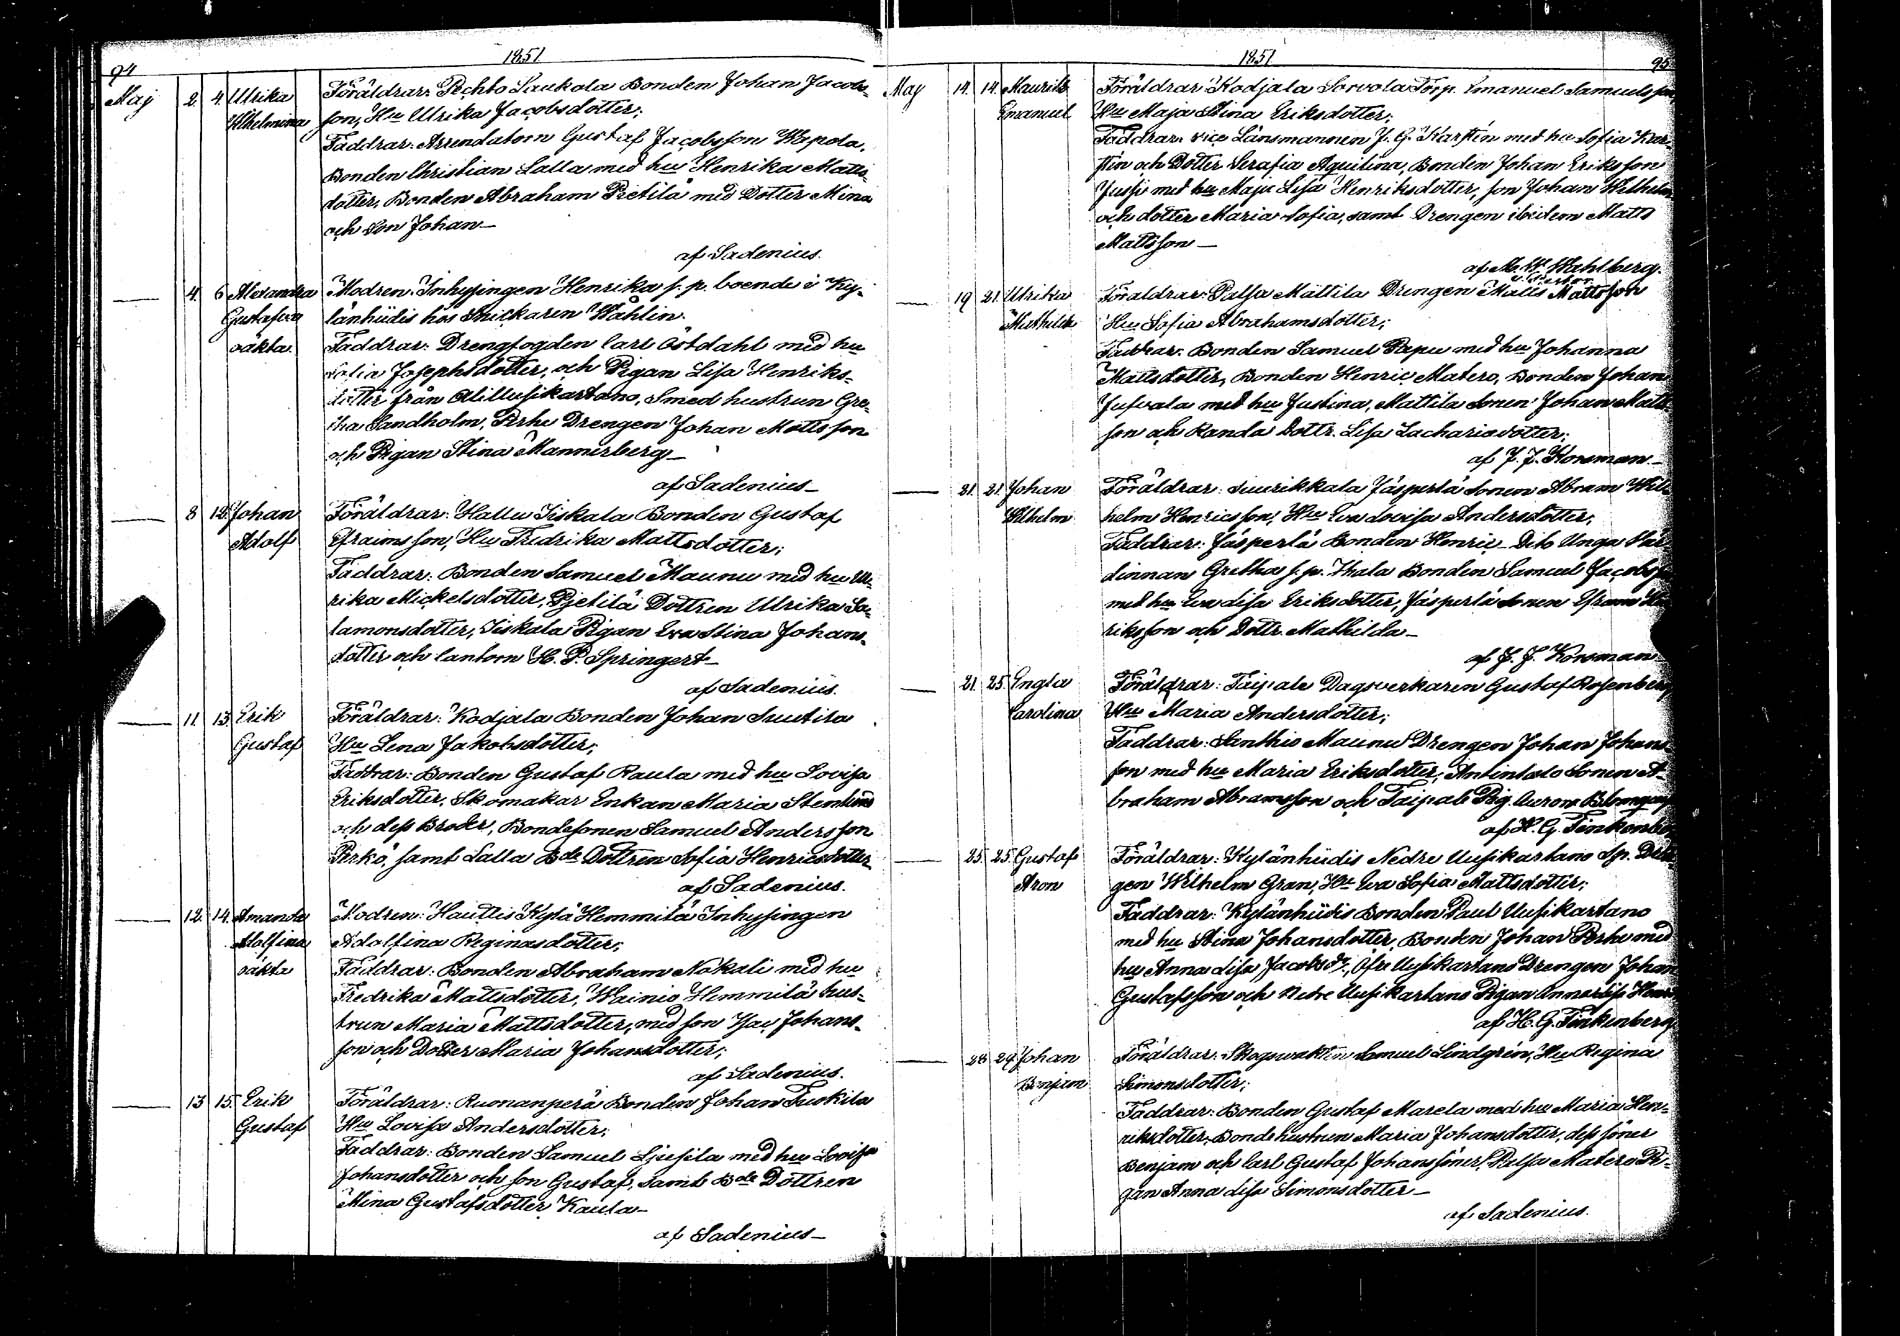 94
1851
Maj 2. 4. Ulrika Wilhelmina
Föräldrar: Pechto Saukola Bonden Johan Jacobs-
son, Hu Ulrika Jacobsdotter;
Faddrar: Arrendatorn Gustaf Jacobsson
Bonden Christian Lalla med hu Henrika Matts-
dotter, Bonden Abraham Pietilä med Dotter Mina
och son Johan—
af Sadenius.
4. 6. Alexandra Gustafva oäkta.
Modren: Inhysingen Henrika s. p. boende i Ky-
länhiidis hos Snickaren Wåhlin.
Faddrar: Drengfogden Carl Östdahl med hu
Sofia Josephsdotter, och Pigan Lisa Henriks-
dotter från Alillusikartano, Smedhustrun Gre-
tha Sandholm, Perhe Drengen Johan Mattsson
och Pigan Stina Mannerberg—
af Sadenius—
8 12. Johan Adolf
Föräldrar: Hallu Iiskala Bonden Gustaf
Efraimsson, Hu Fredrika Mattsdotter;
Faddrar: Bonden Samuel Maunu med hu Ul-
rika Mickelsdotter, Pietilä Dottren Ulrika Sa-
lamonsdotter, Iiskala Pigan Eva Stina Johans-
dotter och Cantorn H. P. Springert—
af Sadenius.
11 13. Erik Gustaf
Föräldrar: Kodjala Bonden Johan Suutila
Hu Lena Jakobsdotter;
Faddrar: Bonden Gustaf Raula med hu Lovisa
Eriksdotter, Skomakar Enkan Maria
och dess Broder, Bondesonen Samuel Andersson
Perkö, samt Lalla Bde Dottren Sofia Henricsdotter
af Sadenius.
12. 14. Amanda Adolfina oäkta
Modren: Hautlis Kylä Hemmilä Inhysingen
Adolfina Reginasdotter;
Faddrar: Bonden Abraham Nökali med hu
Fredrika Mattsdotter, Wainio Hemmilä hus-
trun Maria Mattsdotter, med son Isac Johans-
son och Dotter Maria Johansdotter;
af Sadenius.
13 15. Erik Gustaf
Föräldrar: Ruonanperä Bonden Johan Tuokila
Hu Lovisa Andersdotter;
Faddrar: Bonden Samuel med hu Lovisa
Johansdotter och son Gustaf, samt Bde Dottren
Mina Gustafsdotter Kaula—
af Sadenius—
1851
95
Maj 14. 14. Maurits Emanuel
Föräldrar: Kodjala Sorvola Torp. Emanuel Samuelsson
Hu Maja Stina Eriksdotter;
Faddrar: vice Länsmannen J. G. Karstén med hu Sofia Kar-
stén och Dotter Serafia Aqvilina, Bonden Johan Eriksson
Jussi med hu Maja Lisa Henriksdotter, son Johan Wilhelm
och dotter Maria Sofia, samt Drengen ibidem Matts
Mattsson—
af M. W. Wahlberg.
19 21. Ulrika Mathilda
Föräldrar: Palsa Mattila Drengen Matts Mattsson
Hu Sofia Abrahamsdotter;
Faddrar: Bonden Samuel Papu med hu Johanna
Mattsdotter, Bonden Henric Matero, Bonden Johan
Jusvala med hu Justina, Mattila Sonen Johan Matts-
son och Randa Dottr. Lisa Zachariasdotter;
af J. J. Korsman—
21. 21. Johan Wilhelm
Föräldrar: Suurikkala Jäsperlä Sonen Abram Wil-
helm Henricsson, Hu Eva Lovisa Andersdotter;
Faddrar: Jäsperlä Bonden Henric Dito Unga Vär-
dinnan Gretha s. p. Ihala Bonden Samuel Jacobss.
med hu Eva Lisa Eriksdotter, Jäsperlä Sonen Efraim Hen-
riksson och Dottr. Mathilda—
af J. J. Korsman—
21. 25. Engla Carolina
Föräldrar: Taipale Dagsverkaren Gustaf Rosenberg
Hu Maria Andersdotter;
Faddrar: Santhio Maunu Drengen Johan Johans-
son med hu Maria Eriksdotter, Antintalo Sonen A-
braham Abramsson och Taipale Pig. Aurora
af H. G. Finkenberg
25. 25. Gustaf Aron
Föräldrar: Kylänhiidis Nedre Uusikartano Sp. Dren-
gen Wilhelm Gran, Hu Eva Sofia Mattsdotter;
Faddrar: Kylänhiidis Bonden Paul Uusikartano
med hu Stina Johansdotter, Bonden Johan Perhe med
hu Anna Lisa Jacobsdr., Öfre Uusikartano Drengen Johan
Gustafsson och Nedre Uusikartano Pigan Anna Lisa
af H. G. Finkenberg
28 29. Johan Benjam
Föräldrar: Skogsvakten Samuel Lindgrén, Hu Regina
Simonsdotter;
Faddrar: Bonden Gustaf Marela med hu Maria Hen-
riksdotter, Bondehustrun Maria Johansdotter, dess söner
Benjam och Carl Gustaf Johanssöner, Palsa Matero Pi-
gan Anna Lisa Simonsdotter—
af Sadenius.